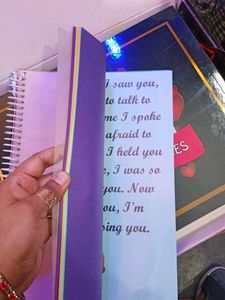 I saw you,
to talk to
me I spoke
afraid to
I held you
, I was so
you. Now
ou, I'm
sing you.
ES